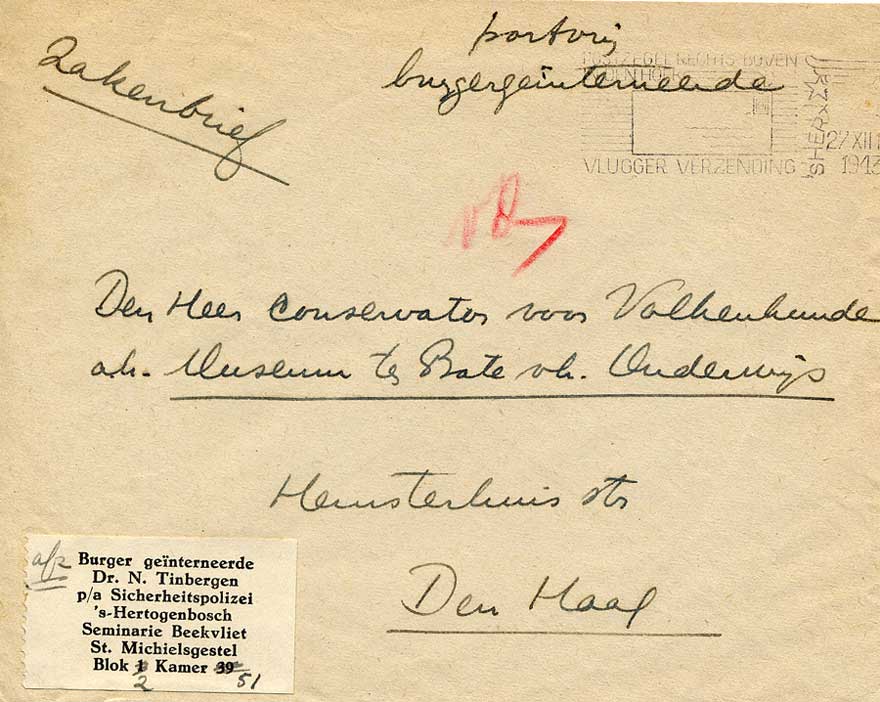 Zakenbrief
portvrij
burgergeïnterneerde
POSTZEGEL RECHTS BOVEN
IN DEN HOEK
VLUGGER VERZENDING
'SHERTX
27 XII 1
1943
Den Heer Conservator voor Volkenkunde
a.h. Museum te Bate v.h. Onderwijs
Hemsterhuis str
Den Haag
afz
Burger geïnterneerde
Dr. N. Tinbergen
p/a Sicherheitspolizei
's-Hertogenbosch
Seminarie Beekvliet
St. Michielsgestel
Blok 1 Kamer 39
2 51